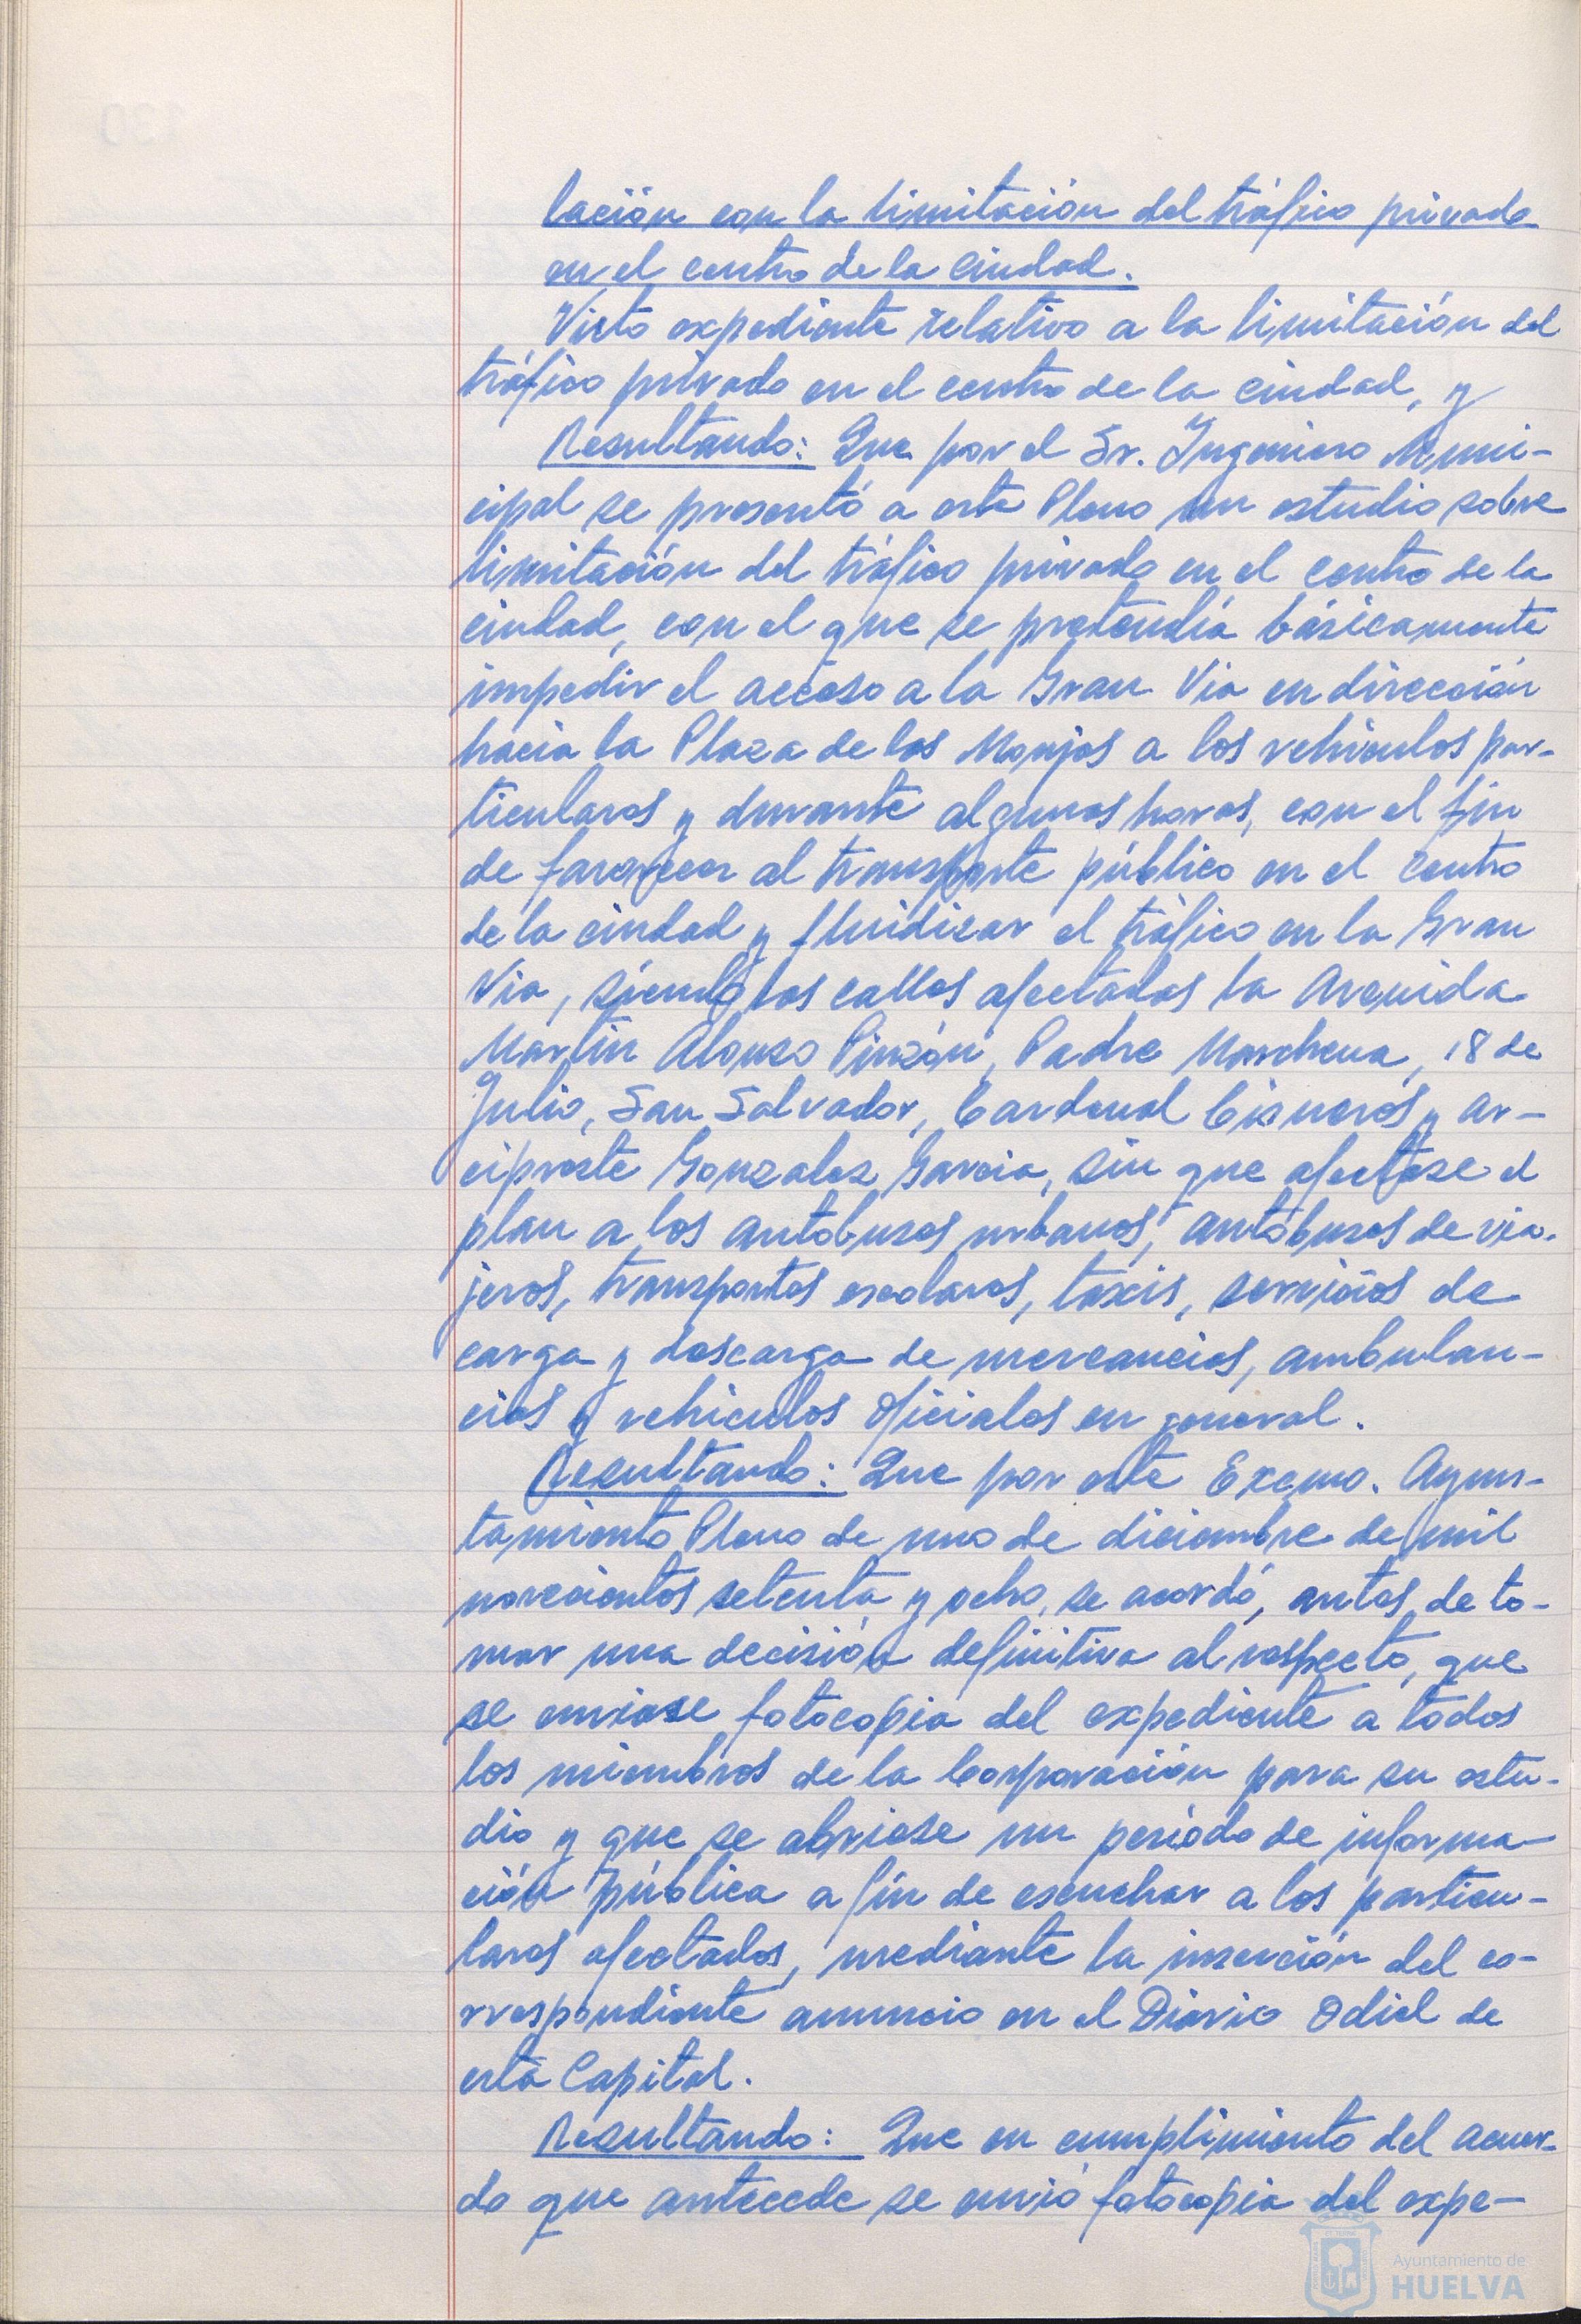 lación con la limitación del tráfico privado
en el centro de la Ciudad.
Visto expediente relativo a la limitación del
tráfico privado en el centro de la ciudad, y
Resultando: Que por el Sr. Ingeniero Muni-
cipal se presentó a este Pleno un estudio sobre
limitación del tráfico privado en el centro de la
ciudad, con el que se pretendía básicamente
impedir el acceso a la Gran Via en dirección
hacia la Plaza de las Monjas a los vehiculos par-
ticulares y durante algunas horas, con el fin
de favorecer al transporte público en el centro
de la ciudad y fluidizar el tráfico en la Gran
Via, siendo las calles afectadas la Avenida
Martín Alonso Pinzón, Padre Marchena, 18 de
Julio, San Salvador, Cardenal Cisneros y Ar-
cipreste Gonzalez Garcia, sin que afectase el
plan a los autobuses urbanos, autobuses de via-
jeros, transportes escolares, taxis, servicios de
carga y descarga de mercancias, ambulan-
cias y vehiculos oficiales en general.
Resultando: Que por este Excmo. Ayun-
tamiento Pleno de uno de diciembre de mil
novecientos setenta y ocho, se acordó, antes de to-
mar una decisión definitiva al respecto, que
se enviase fotocopia del expediente a todos
los miembros de la Corporación para su estu-
dio y que se abriese un periodo de informa-
ción pública a fin de escuchar a los particu-
lares afectados, mediante la inserción del co-
rrespondiente anuncio en el Diario Odiel de
esta Capital.
Resultando: Que en cumplimiento del acuer-
do que antecede se envió fotocopia del expe-
Ayuntamiento de
HUELVA